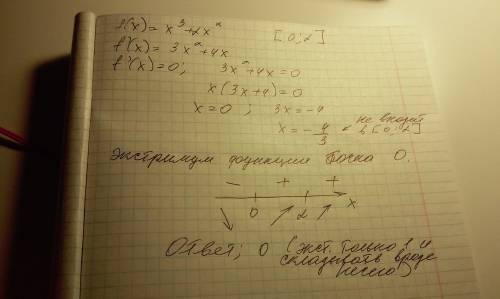 f(x) = x³+2x² [0;2]
f'(x) = 3x²+4x
f'(x)=0; 3x²+4x=0
x(3x+4)=0
x=0 ; 3x=-4
x=-4/3 ← не входит в [0;2]
экстримум функции точка 0.
- + +
0 2 x
Ответ; 0 (экст. только 1 и
складывать вроде
нечего)